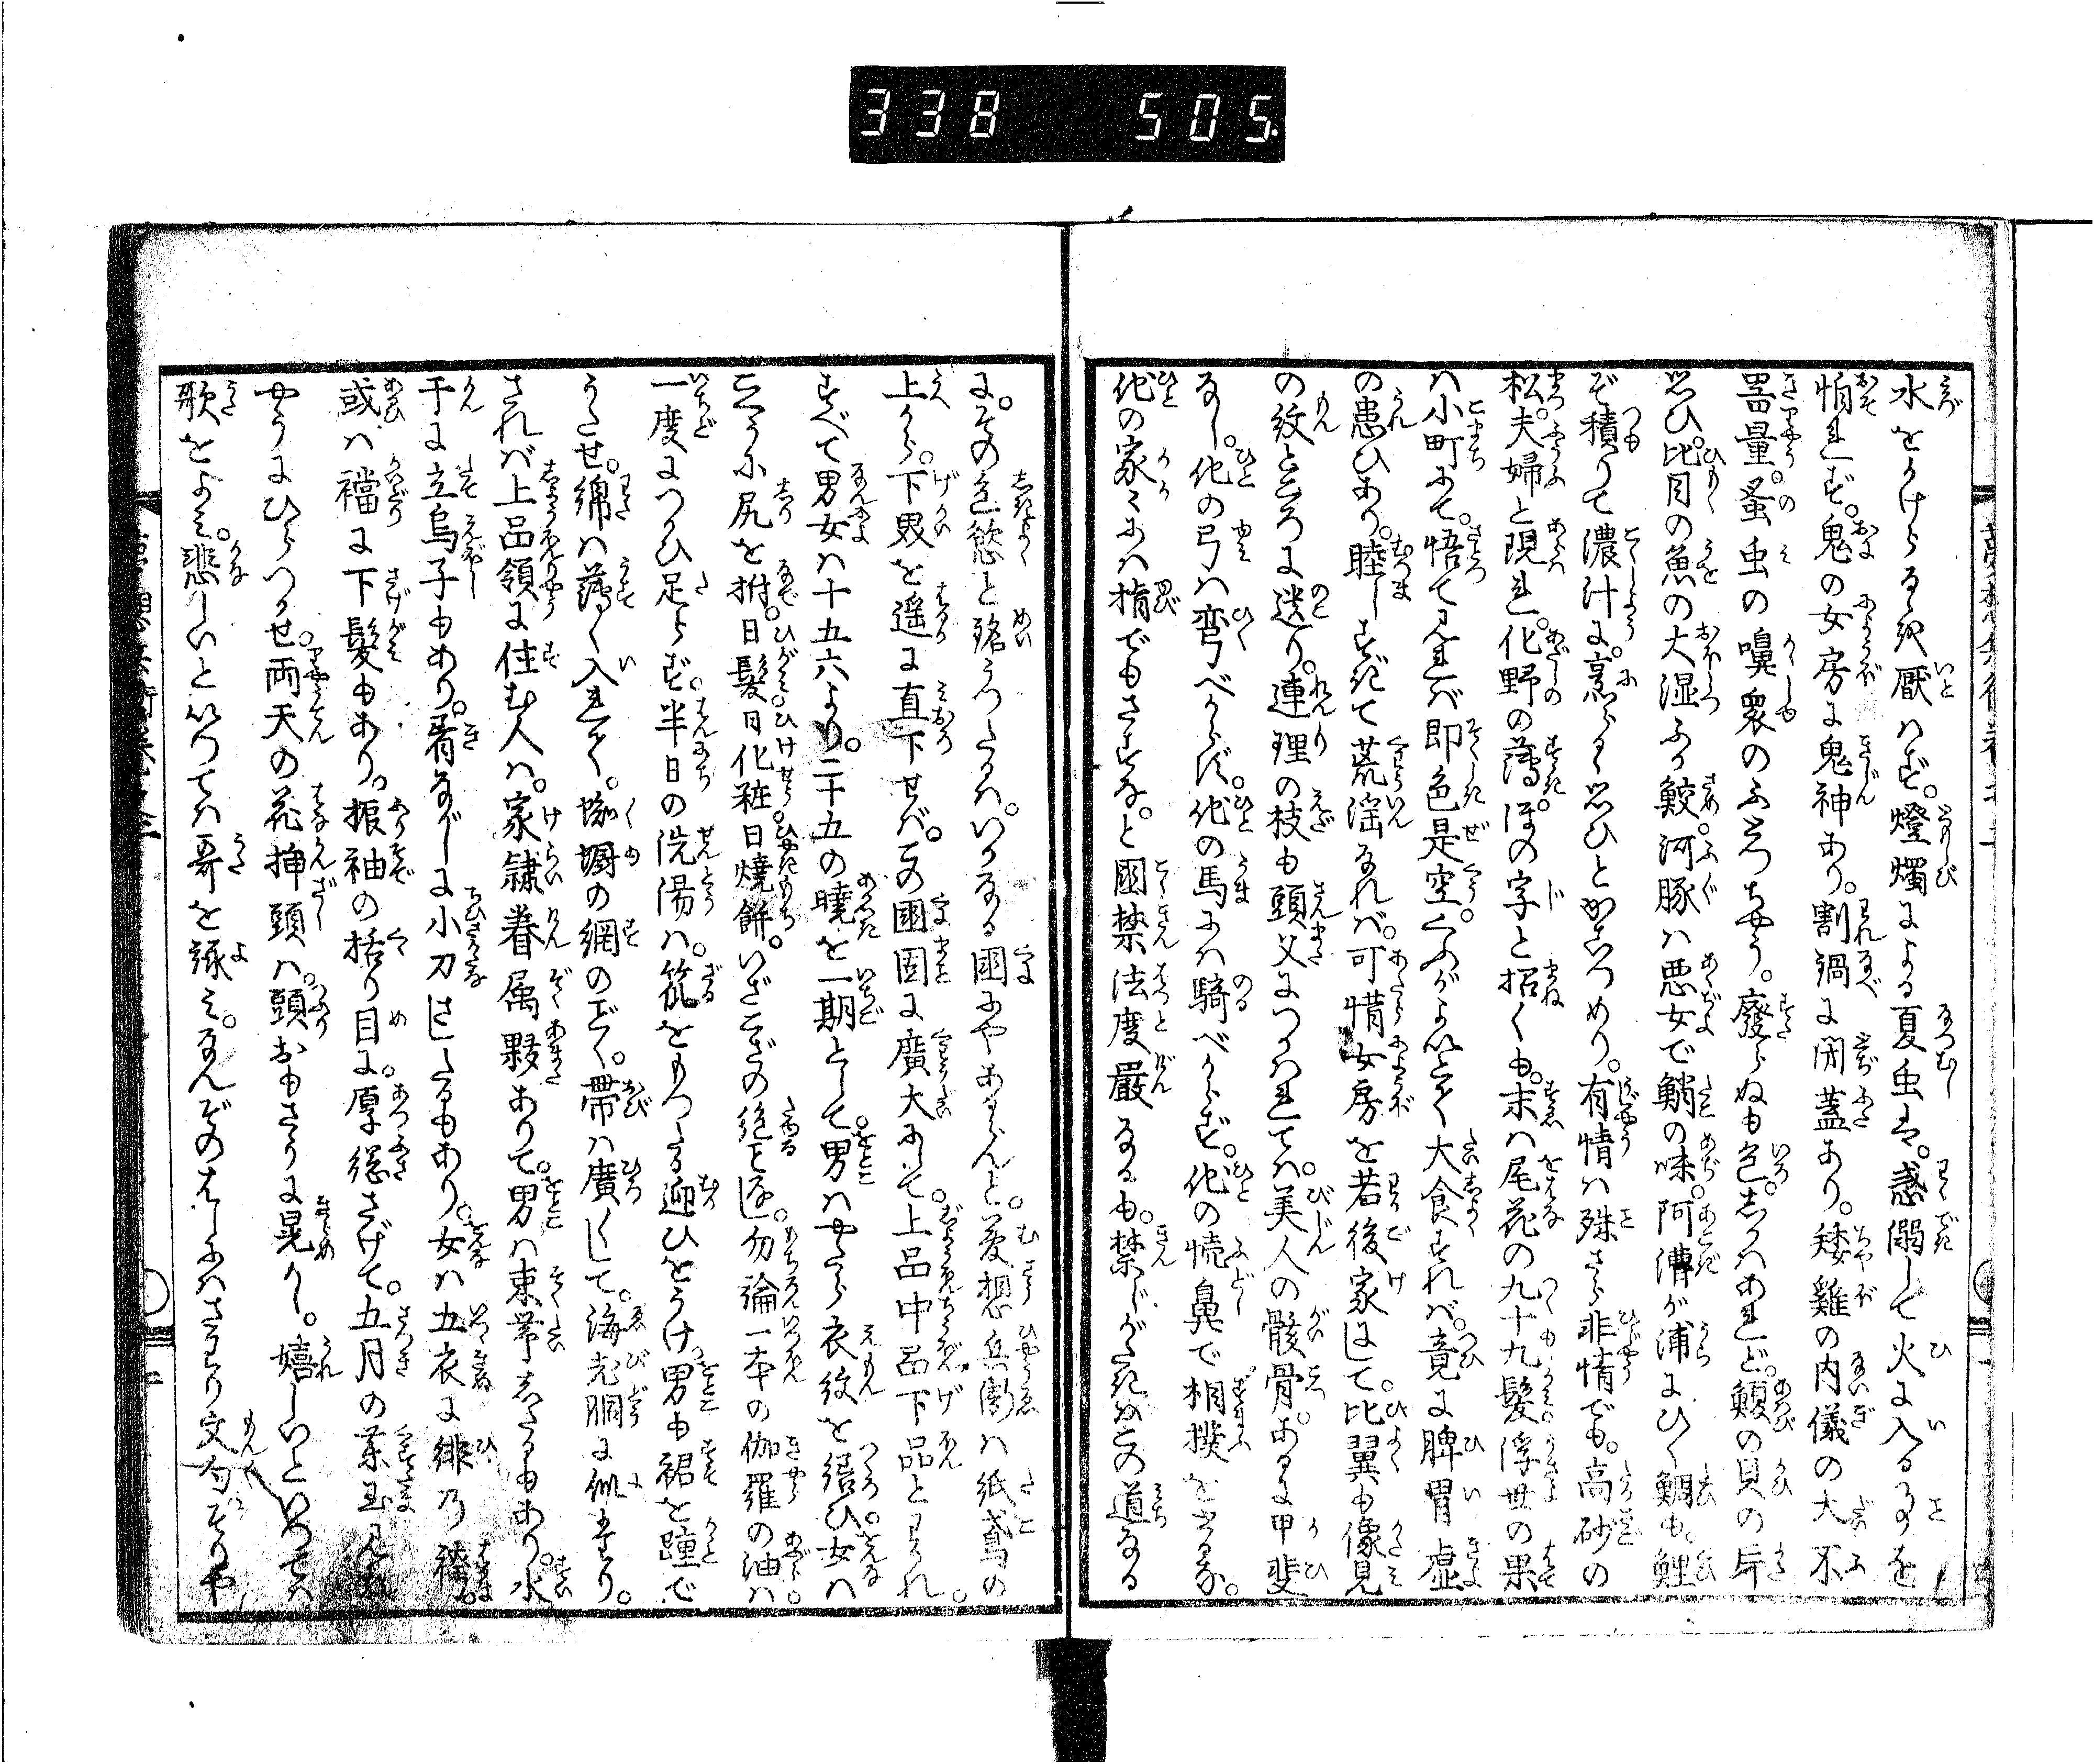 338 505
水をかけらるゝを厭はず。燈燭による夏虫は。惑溺して火に入ることを
怕れず。鬼の女房に鬼神あり。割鍋に閉蓋あり。矮雞の内儀の大不
噐量。蚤虫の嗅衆のふところちやう。廢らぬも色。しかはあれど。鰒の貝の片
思ひ。比目の魚の大湿ふか鮫。河豚は悪女で鮹の味。阿漕が浦にひく鯛も。鯉
ぞ積りて濃汁に。烹らるゝ思ひとかこつめり。有情は殊さら非情でも。高砂の
松。夫婦と現れ。化野の薄。ほの字と招くも。末は尾花の九十九髪。浮世の果
は小町にて。悟て見れば即色是空。くふがよいとて大食すれば。竟に脾胃虚
の患ひあり。睦しすぎて荒淫なれば。可惜女房を若後家にして。比翼も像見
の紋ところに迷り。連理の枝も頭乂につかはれては。美人の骸骨。あるに甲斐
なし。他の弓は弯べからず。他の馬には騎べからず。他の犢鼻で相撲をとるな。
他の家々には指でもさすな。と國禁法度嚴なるも。禁じがたきはこの道なる
に。その色慾と銘うつたるは。いかなる國にやあらんと。夢想兵衛は紙鳶の
上から。下界を遥に直下せば。この國固に廣大にして。上品中品下品とわかれ。
すべて男女は十五六より。二十五の曉を一期として。男はやたら衣紋を繕ひ女は
こゝろに尻を拊。日髪日化粧日燒餅。いざこざの絶となし。勿論一本の伽羅の油は。
一度につかひ足らず。半日の洗湯は。笊をもつたる迎ひをうけ。男も裾を踵で
うたせ。綿は薄く入れて。蜘蛛の網のごとく。帯は廣くして。海老胴に似たり。
されば上品領に住む人は。家隷眷属夥ありて。男は束帯したるもあり。水
干に立烏子もあり。着ながしに小刀さしたるもあり。女は五衣に緋の袴。
或は襠に下髪もあり。振袖の括り目に。厚總さげて。五月の薬玉
やうにひらつかせ。両天の花挿頭は。頭おもさうに晃めかし。嬉しいといつては
歌をよみ。悲しいといつては哥を詠み。なんぞのはしにはさはり文句ぞりや